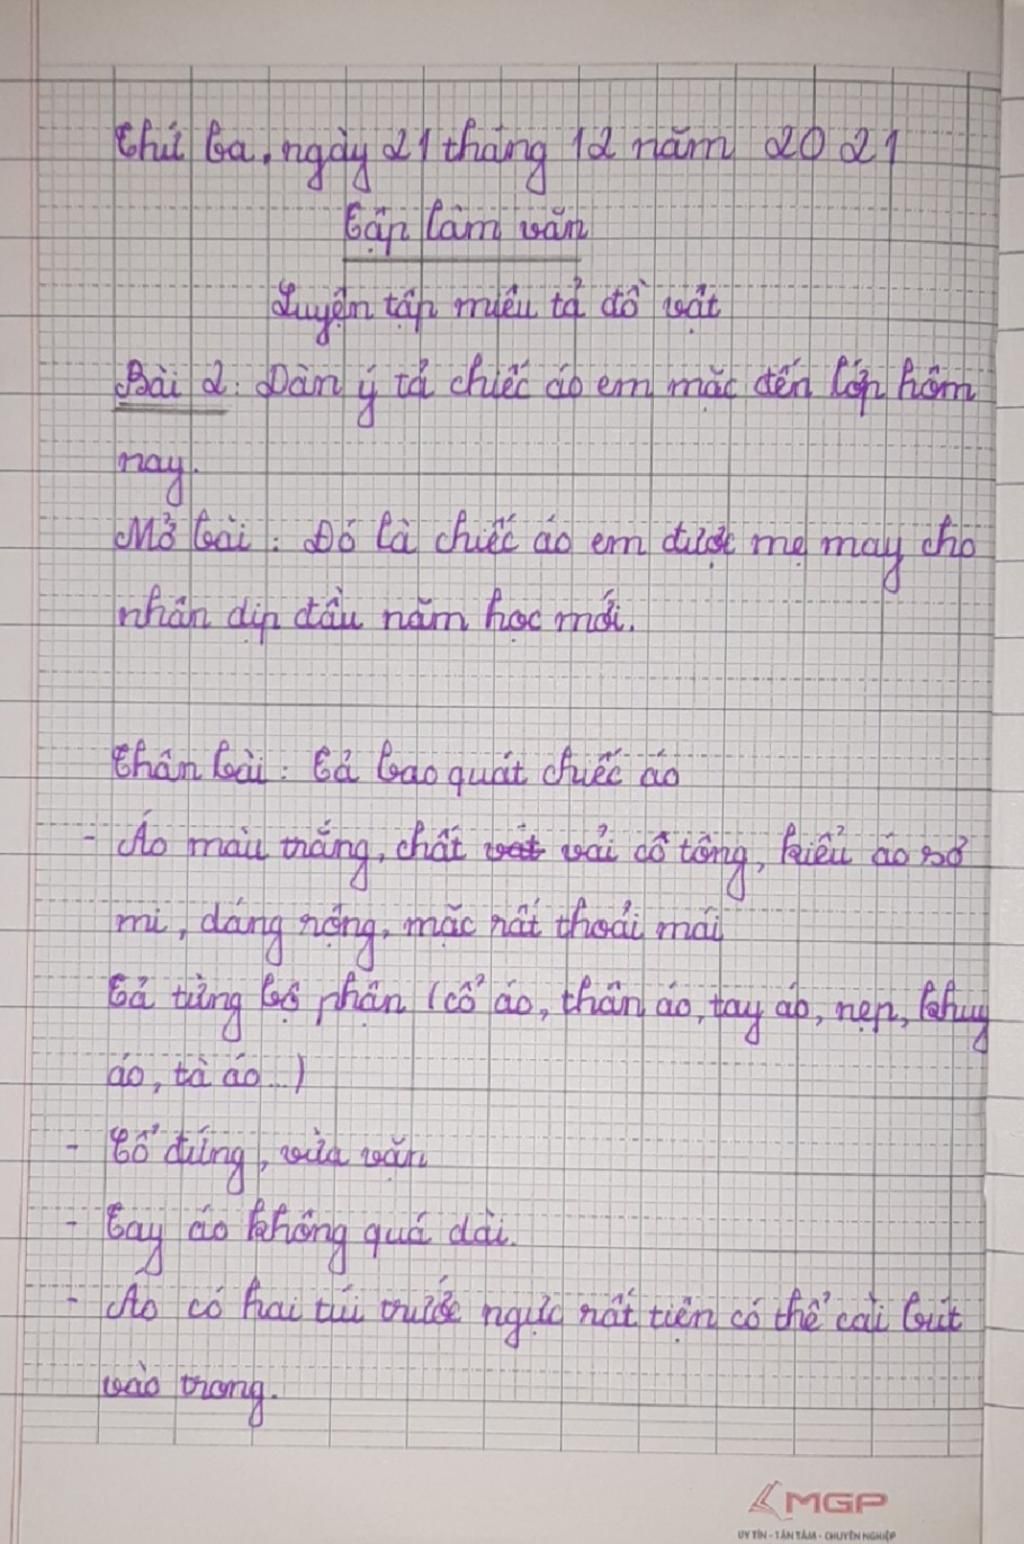 Thứ ba, ngày 21 tháng 12 năm 2021
Tập làm văn
Luyện tập miêu tả đồ vật
Bài 2: Dàn ý tả chiếc áo em mặc đến lớp hôm
nay.
Mở bài: Đó là chiếc áo em được mẹ may cho
nhân dịp đầu năm học mới.
Thân bài: Tả bao quát chiếc áo
- Áo màu trắng, chất vât vải cô tông, kiểu áo sơ
mi, dáng rộng, mặc rất thoải mái
Tả từng bộ phận (cổ áo, thân áo, tay áo, nẹp, khuy
áo, tà áo...)
- Cổ đứng, vừa vặn
- Tay áo không quá dài.
- Áo có hai túi trước ngực rất tiện có thể cài bút
vào trong.
MGP
UY TÍN - TẬN TÂM - CHUYÊN NGHIỆP